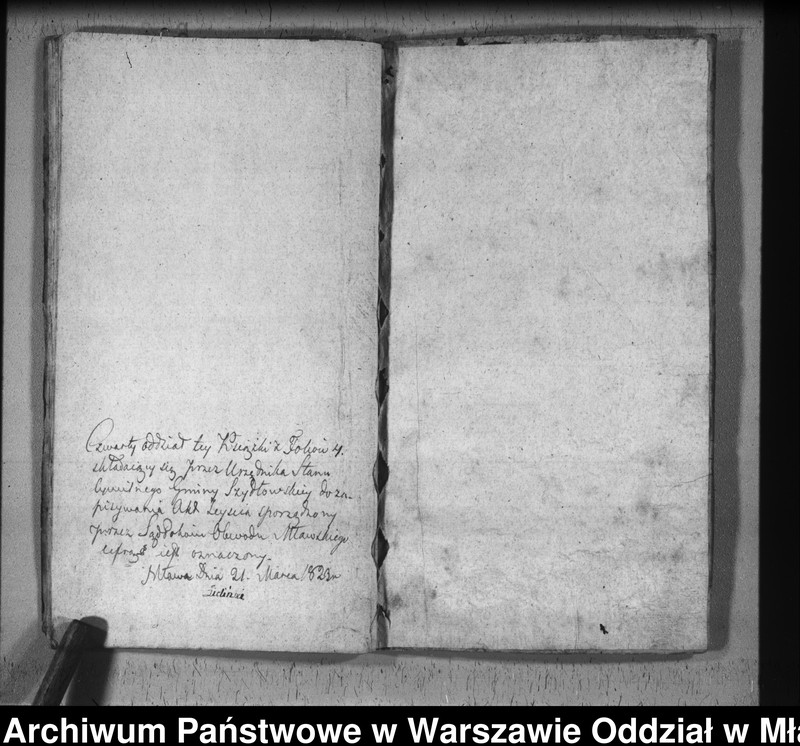 Czwarty oddział tey Książki z Foliow 4.
składaiący się przez Urzędnika Stanu
Cywilnego Gminy Szydłowskiey do za-
pisywania Akt zeyścia sporządzony
przez Sąd Pokoiu Obwodu Mławskiego
cyfrą iest oznaczony.
Mława Dnia 21. Marca 1823 r
Zieliński
Archiwum Państwowe w Warszawie Oddział w Mła